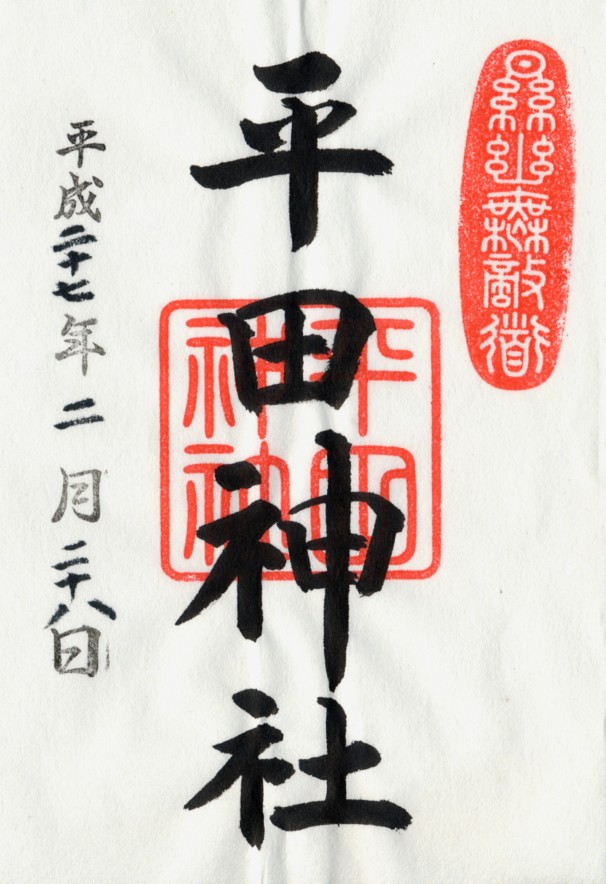 顯幽無敵道
平田神社
平田神社
平成二十七年二月二十八日